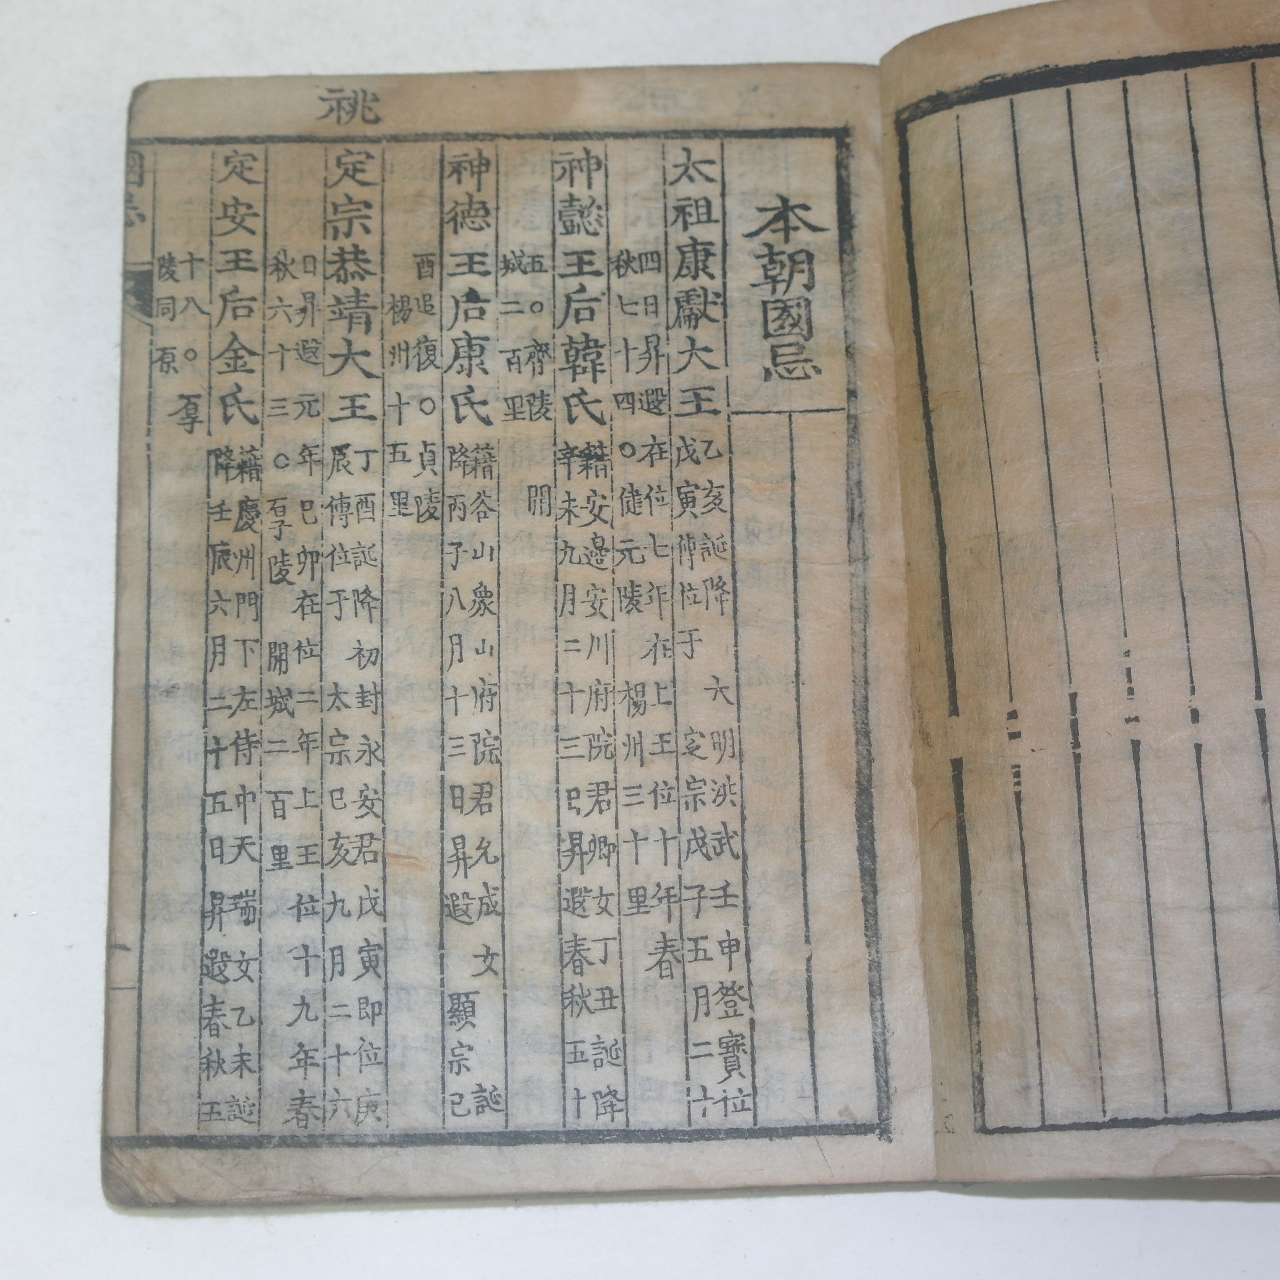 本朝國忌
太祖康獻大王
乙亥誕降 六 明洪武壬申登寶位
戊寅傳位于 定宗戊子五月二十
四日昇遐在位七年在上王位十年春
秋七十四○健元陵 楊州三十里
神懿王后韓氏
籍安邊安川府院君卿女丁丑誕降
辛未九月二十三日昇遐春秋五十
五○齊陵 開
城二百里
神德王后康氏
籍谷山象山府院君允成女 誕
降丙子八月十三日昇遐 顯宗己
酉追復○貞陵
楊州十五里
祧
定宗恭靖大王
丁酉誕降初封永安君戊寅即位庚
辰傳位于 太宗己亥九月二十六
日昇遐元年己卯在位二年上王位十九年春
秋六十三○厚陵 開城二百里
定安王后金氏
籍慶州門下左侍中天瑞女乙未誕
降壬辰六月二十五日昇遐春秋五
十八○厚
陵同原
國忌